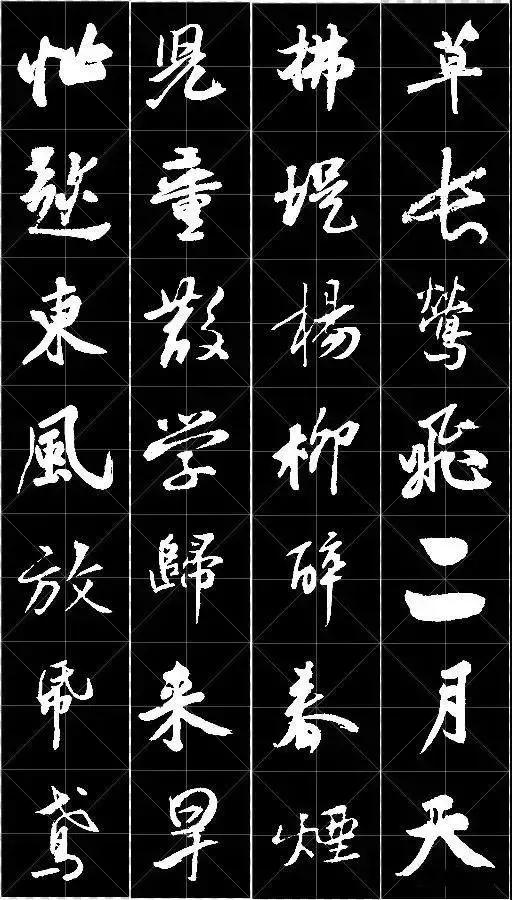 草长鶯飛二月天
拂堤楊柳醉春煙
兒童散学歸来早
忙趂東風放帋鳶